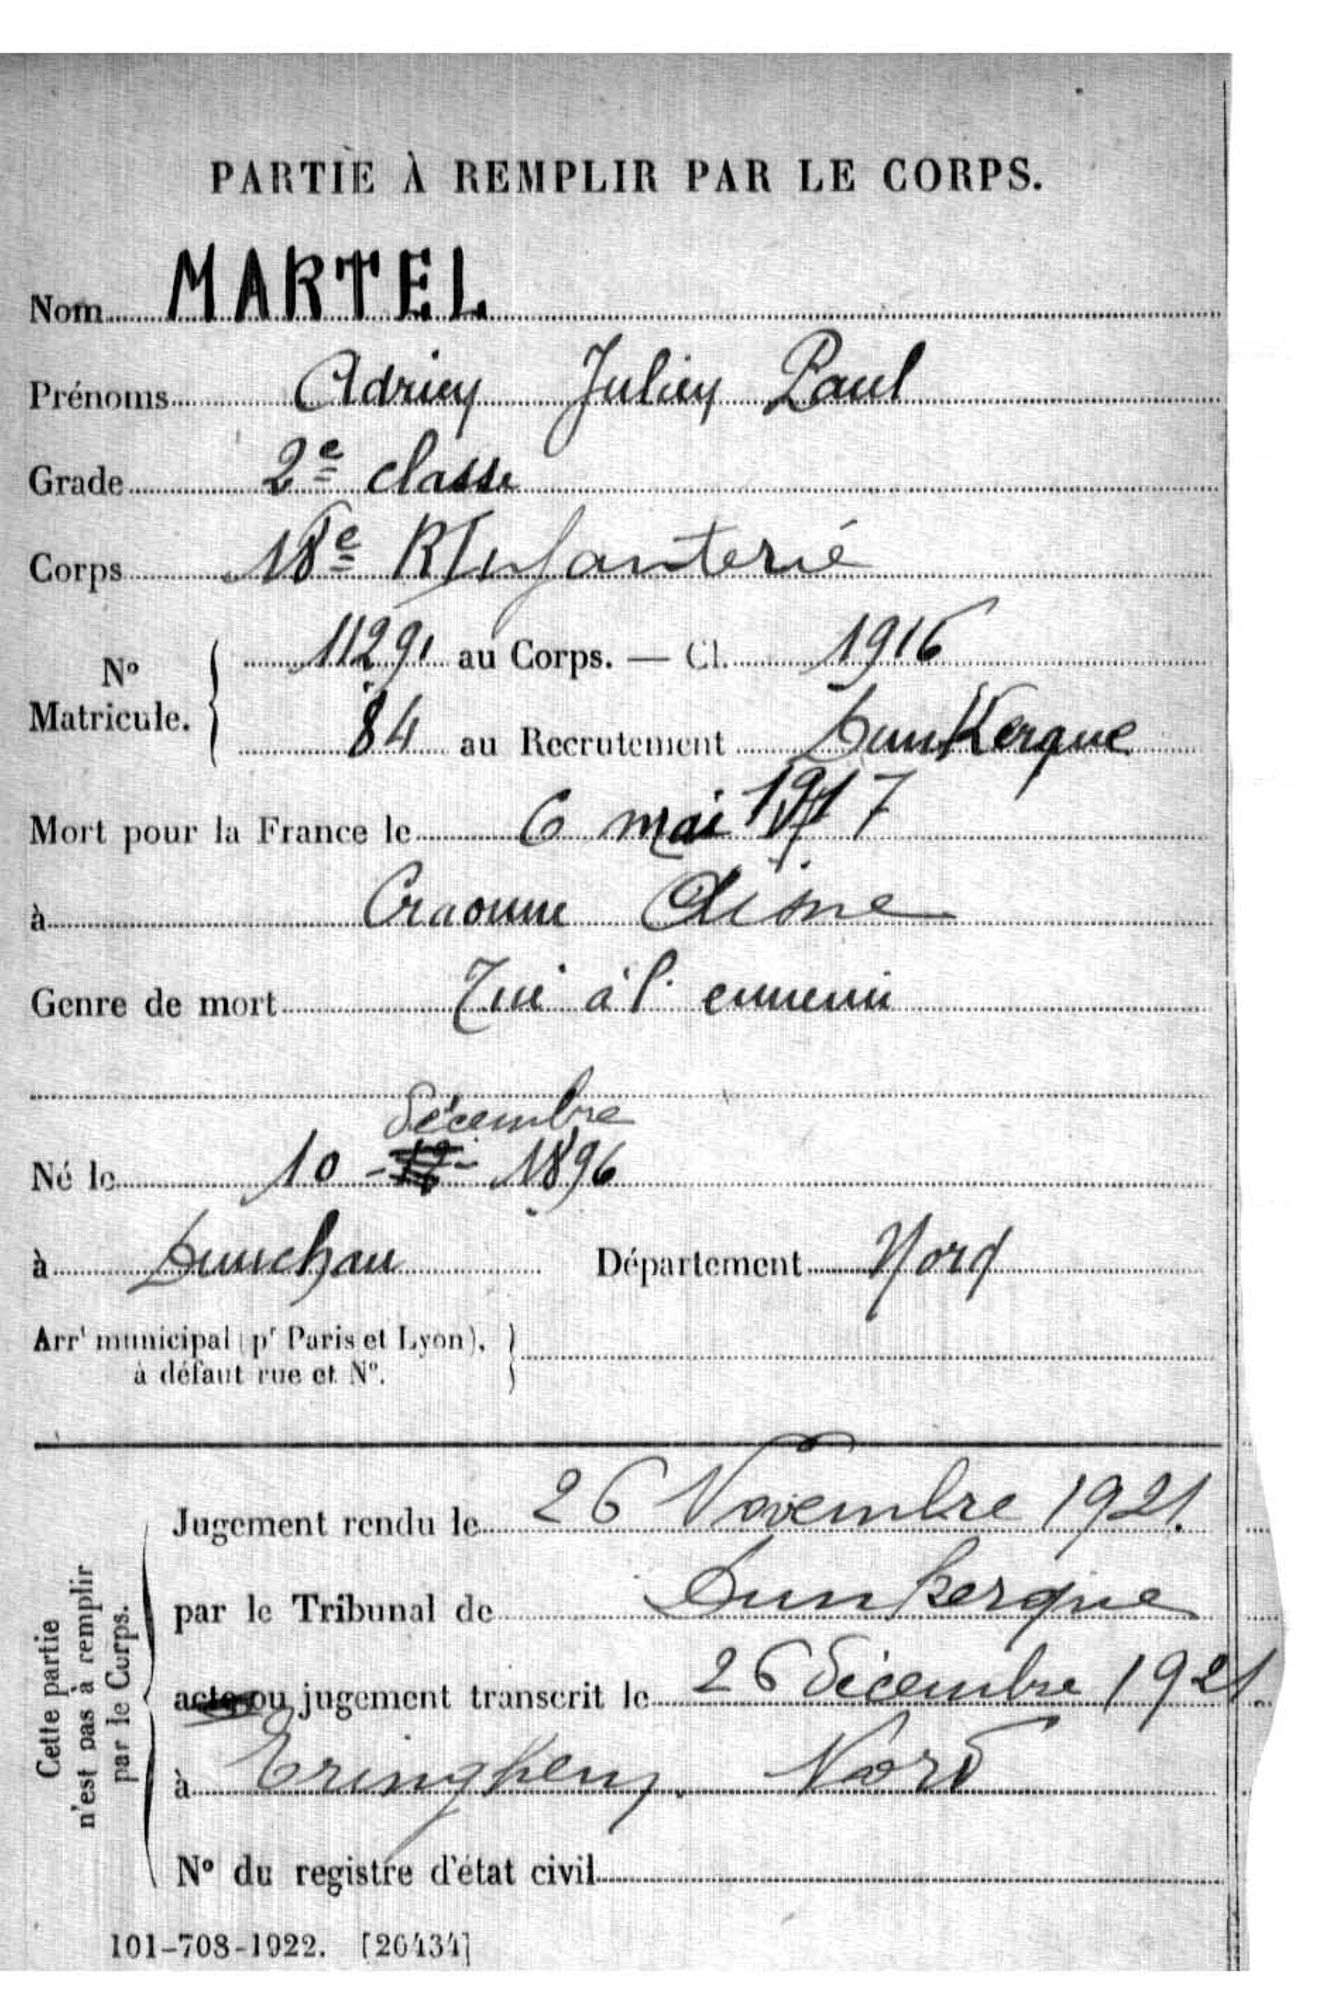 PARTIE À REMPLIR PAR LE CORPS.
Nom MARTEL
Prénoms Adrien Julien Paul
Grade 2e classe
Corps 18e RInfanterie
No Matricule. 11291 au Corps. — Cl. 1916
84 au Recrutement Dunkerque
Mort pour la France le 6 mai 1917
à Craonne Aisne
Genre de mort Tué à l'ennemi
décembre
Né le 10 - 12 - 1896
à Département Nord
Arrt municipal (pr Paris et Lyon),
à défaut rue et No.
Jugement rendu le 26 Novembre 1921.
par le Tribunal de Dunkerque
acte ou jugement transcrit le 26 décembre 1921.
à Eringhem. Nord
No du registre d'état civil
Cette partie
n'est pas à remplir
par le Corps.
101-708-1922. [26434]